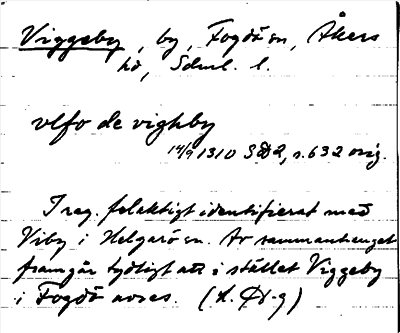 Viggeby, by, Fogdö sn, Åkers
hd, Sdml. l.
vlfo de vighby
14/9 1310 SD 2, s. 632 orig.
I reg. felaktigt identifierat med
Viby i Helgarö sn. Av sammanhanget
framgår tydligt att i stället Viggeby
i Fogdö avses. (